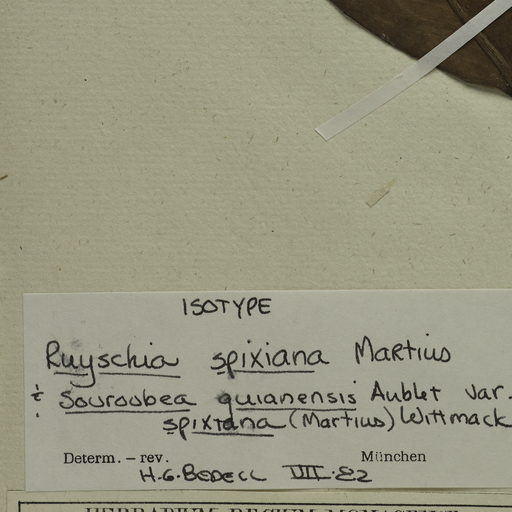 ISOTYPE
Ruyschia spixiana Martius
Souroubea guianensis Aublet var.
spixiana (Martius) Wittmack
Determ. – rev. München
H.G. BEDELL VIII·82